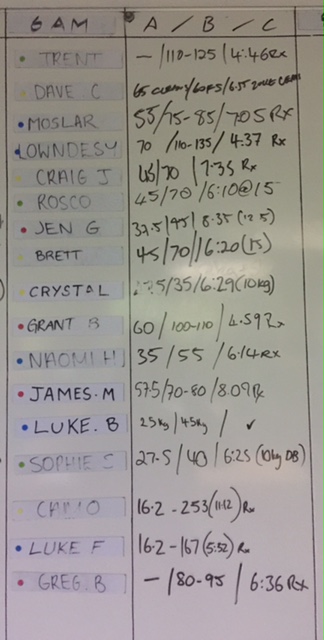 6 AM A / B / C
TRENT — / 110-125 / 4:46 Rx
DAVE C
MOSLAR 55/75-85/7:05 Rx
LOWNDESY 70 / 110-135 / 4:37 Rx
CRAIG J 45/70 / 7:35 Rx
ROSCO 45/70 / 6:10@15
JEN G 37.5/45 / 8:35 (12.5)
BRETT 45/70/6:20(15)
CRYSTAL /35/6:29(10kg)
GRANT B 60 / 100-110 / 4:59 Rx
NAOMI H 35 / 55 / 6:14 Rx
JAMES.M 57.5/70-80 / 8:09 Rx
LUKE.B 25kg / 45kg / ✓
SOPHIE S 27.5 / 40 / 6:25 (10kg DB)
CAMO 16.2 - 253(11:12) Rx
LUKE F 16.2 - 167(5:52) Rx
GREG.B — / 80-95 / 6:36 Rx